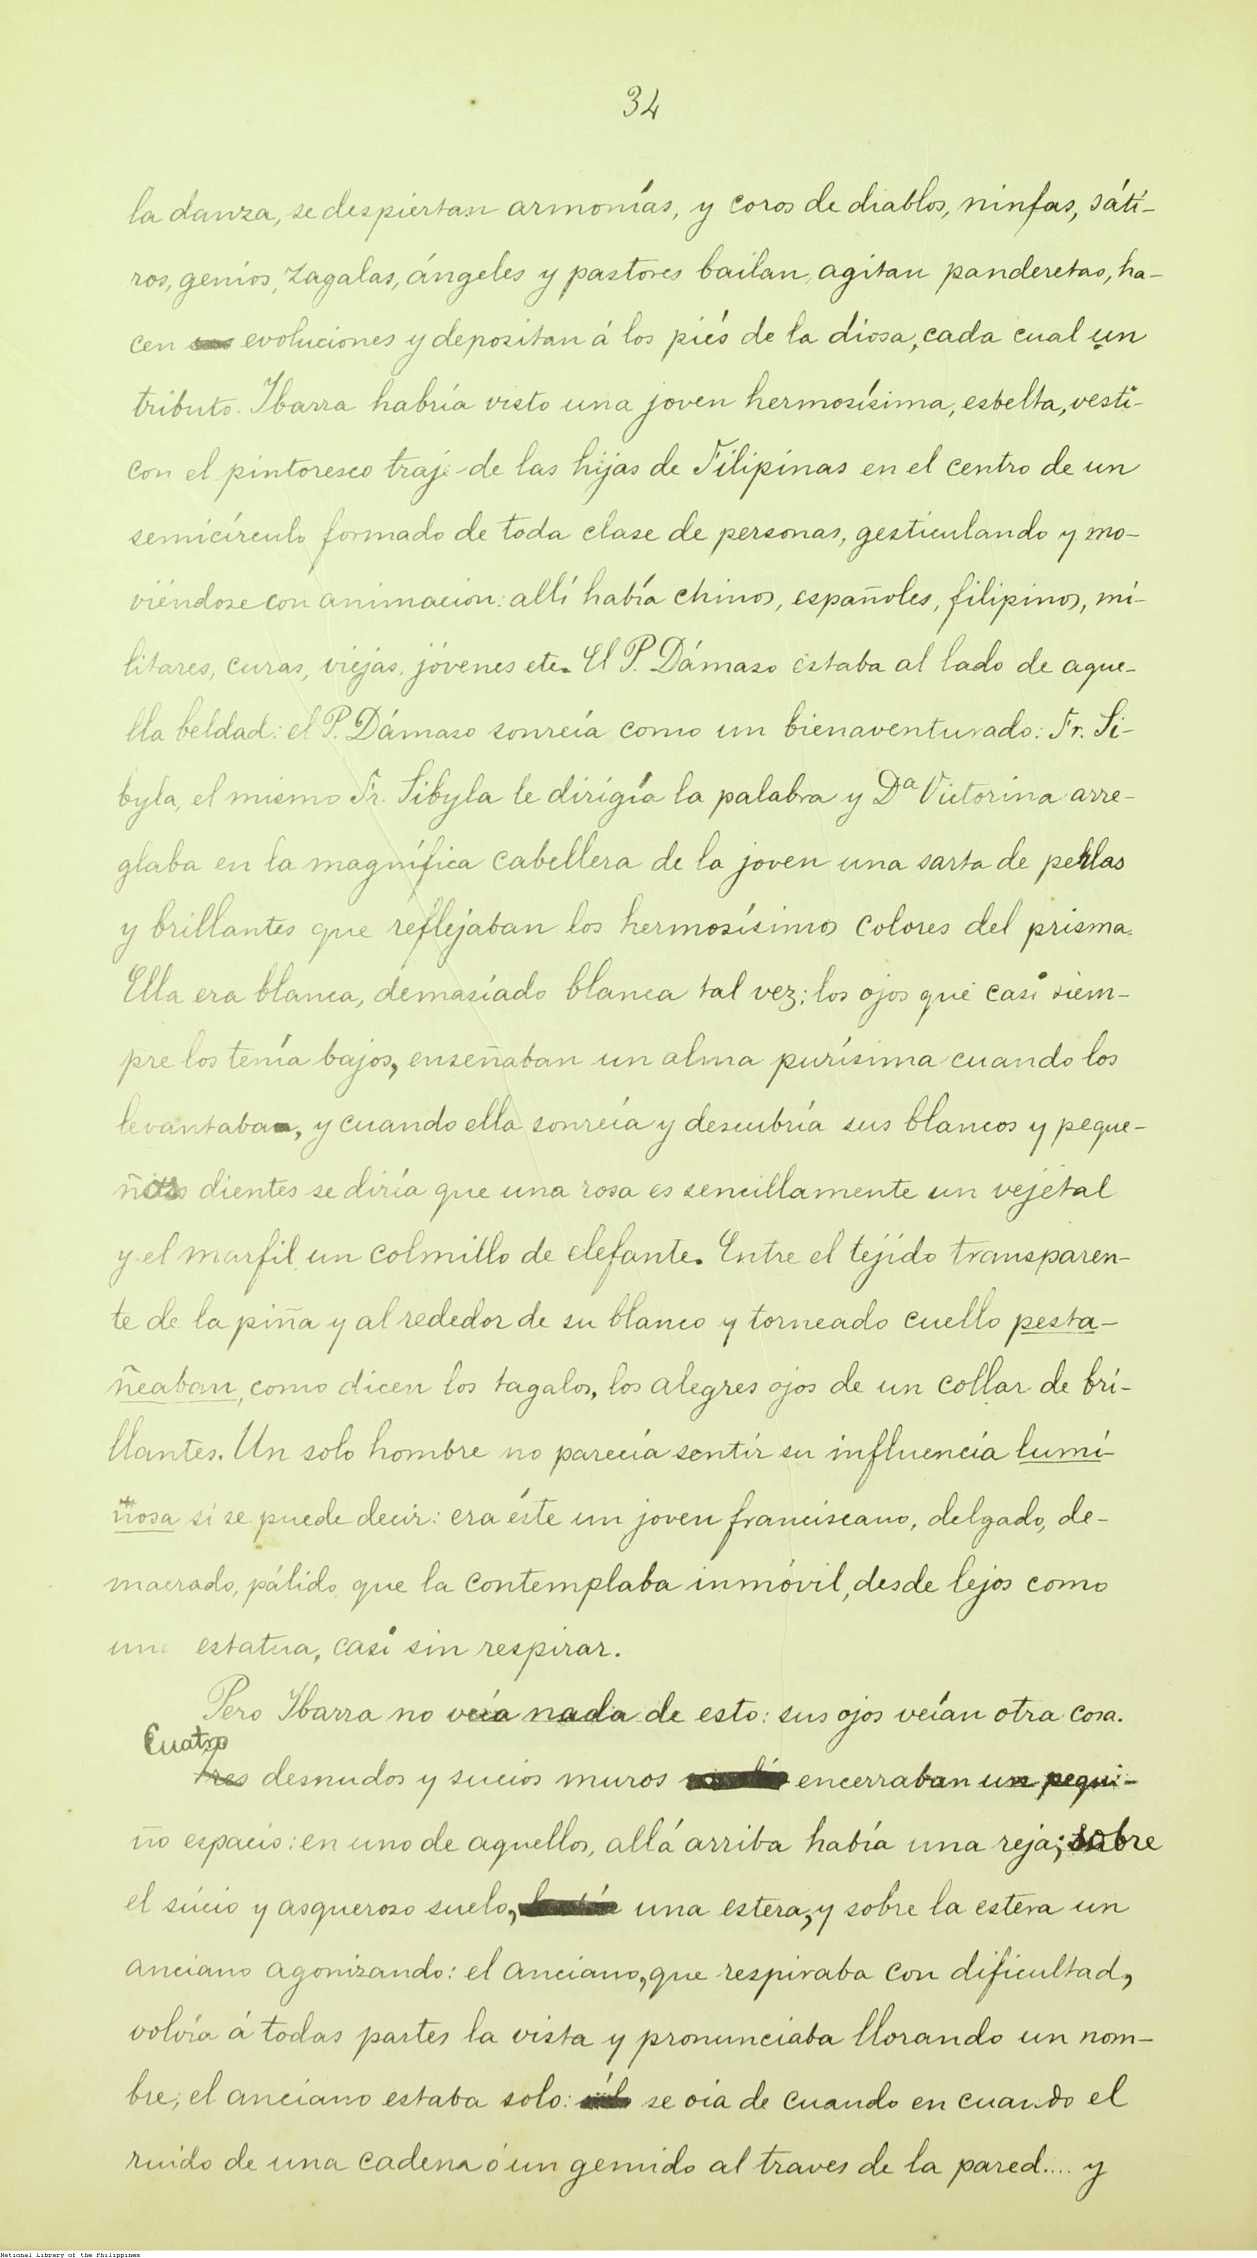 34
la danza, se despiertan armonías, y coros de diablos, ninfas, sáti-
ros, genios, zagalas, ángeles y pastores bailan, agitan panderetas, ha-
cen evoluciones y depositan á los piés de la diosa, cada cual un
tributo. Ibarra habría visto una joven hermosísima, esbelta, vesti-
con el pintoresco traje de las hijas de Filipinas en el centro de un
semicírculo formado de toda clase de personas, gesticulando y mo-
viéndose con animacion: allí había chinos, españoles, filipinos, mi-
litares, curas, viejas, jóvenes etc. El P. Dámaso estaba al lado de aque-
lla beldad: el P. Dámaso sonreía como un bienaventurado: Fr. Si-
byla, el mismo Fr. Sibyla le dirigía la palabra y Dª Victorina arre-
glaba en la magnífica cabellera de la joven una sarta de perlas
y brillantes que reflejaban los hermosísimos colores del prisma.
Ella era blanca, demasiado blanca tal vez; los ojos que casi siem-
pre los tenía bajos, enseñaban un alma purísima cuando los
levantaba, y cuando ella sonreía y descubría sus blancos y peque-
ños dientes se diría que una rosa es sencillamente un vejetal
y el marfil un colmillo de elefante. Entre el tejido transparen-
te de la piña y al rededor de su blanco y torneado cuello pesta-
ñeaban, como dicen los tagalos, los alegres ojos de un collar de bri-
llantes. Un solo hombre no parecía sentir su influencia lumi-
nosa si se puede decir: era éste un joven franciscano, delgado, de-
macrado, pálido que la contemplaba inmóvil, desde lejos como
una estatua, casi sin respirar.
Pero Ibarra no veía nada de esto: sus ojos veían otra cosa.
Cuatro
tres desnudos y sucios muros encerraban un pequi-
ño espacio: en uno de aquellos, allá arriba había una reja; sobre
el súcio y asqueroso suelo, una estera, y sobre la estera un
anciano agonizando: el anciano, que respiraba con dificultad,
volvía á todas partes la vista y pronunciaba llorando un nom-
bre; el anciano estaba solo: se oía de cuando en cuando el
ruido de una cadena ó un gemido al traves de la pared.... y
National Library of the Philippines